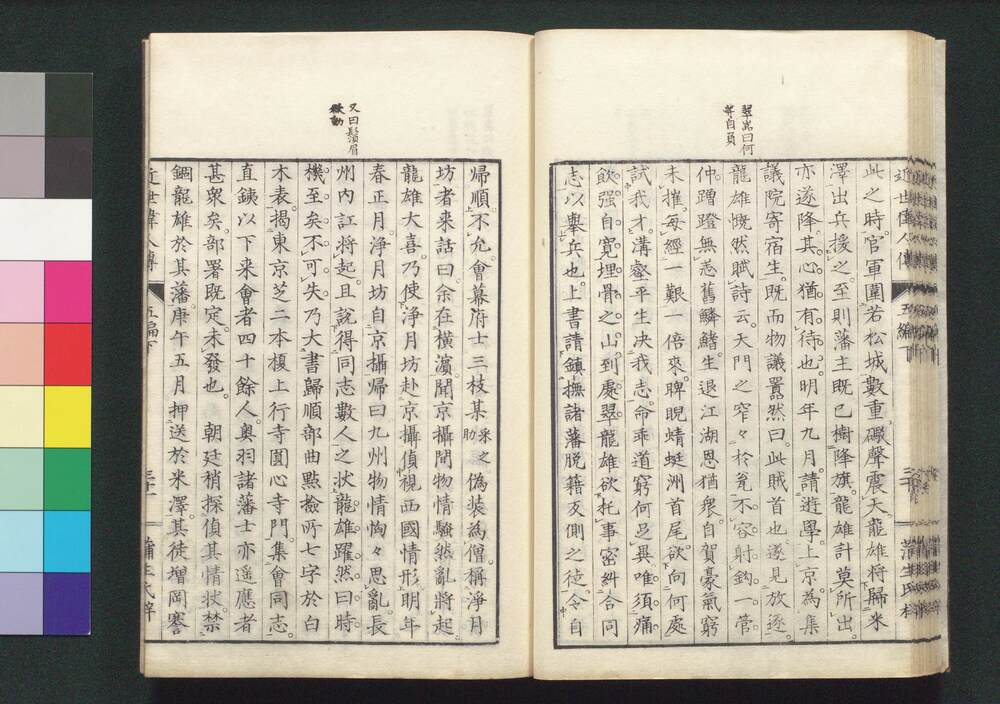 翠嵐曰何
等自負
近世偉人傳
五編下
蒲生氏梓
此之時官軍圍若松城數重礮聲震天龍雄將歸米
澤出兵援之至則藩主既已樹降旗龍雄計莫所出
亦遂降其心猶有待也明年九月請遊學上京為集
議院寄宿生既而物議囂然曰此賊首也遂見放逐
龍雄慨然賦詩云天門之窄々於瓮不容射鈎一管
仲蹭蹬無恙舊鱗鰭生退江湖恩猶衆自賀豪氣窮
未摧每經一艱一倍來睥睨蜻蜓洲首尾欲向何處
試我才溝壑平生决我志命乖道窮何足異唯須痛
飲强自寬埋骨之山到處翠龍雄欲托事密糾合同
志以擧兵也上書請鎮撫諸藩脱籍反側之徒令自
又曰鬚眉
欲動
歸順不允會幕府士三枝某采之助偽装為僧稱淨月
坊者来話曰余在橫濵聞京攝間物情騷然亂將起
龍雄大喜乃使淨月坊赴京攝偵視西國情形明年
春正月淨月坊自京攝歸曰九州物情恟々思亂長
州内訌將起且說得同志數人之状龍雄躍然曰時
機至矣不可失乃大書歸順部曲點撿所七字於白
木表揭東京芝二本榎上行寺圓心寺門集會同志
直銕以下来會者四十餘人奥羽諸藩士亦遥應者
甚衆矣部署既定未發也　朝廷稍探偵其情状禁
錮龍雄於其藩庚午五月押送於米澤其徒增岡謇
近世偉人傳
五編下
三十一
蒲生氏梓